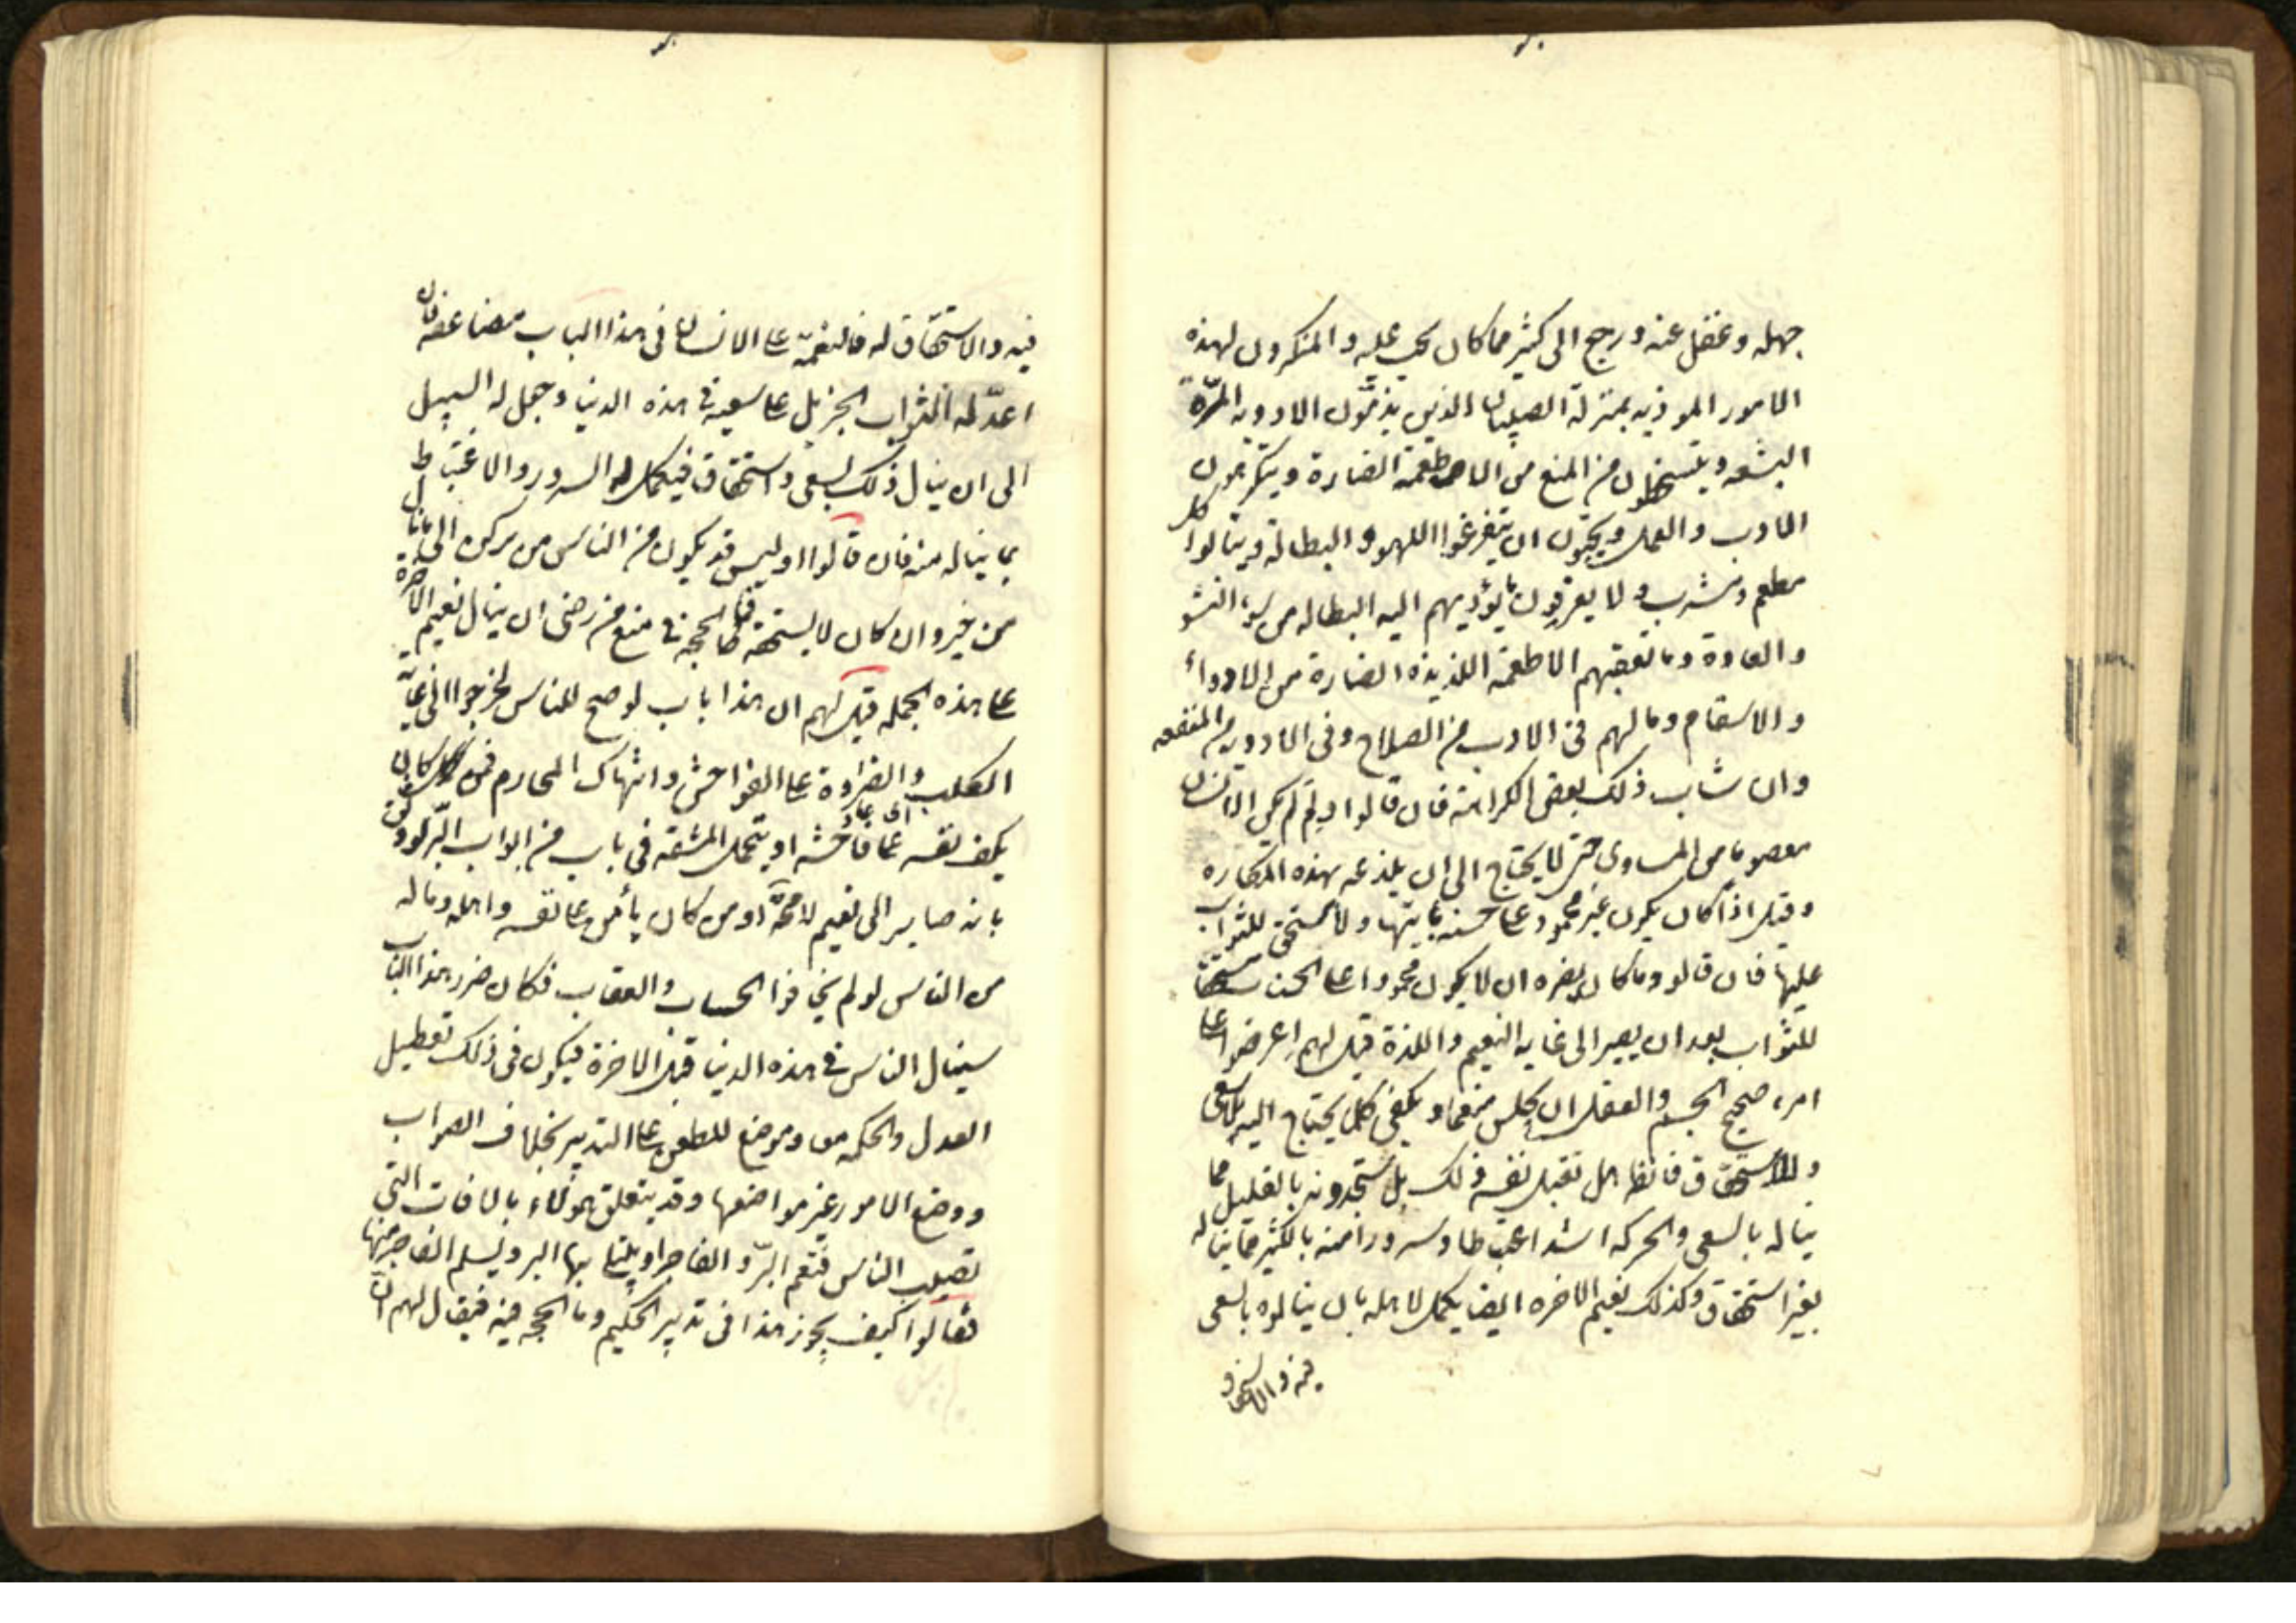 جهله وغفل عنه ورجع الى كثير مما كان يجب عليه والمنكرون لهذه
الامور الموذيه بمنزلة الصبيان الذين يذمّون الادويه المرّة
البشعه ويتسخطون من المنع من الاطعمة الضارة ويتكرهون
الادب والعمل ويحبّون ان يتفرغوا للهو والبطالة وينالوا كل
مطعم ومشرب ولا يعرفون ما يؤديهم اليه البطاله من سوء النشو
والعادة وما تعقبهم الاطعمة اللذيذه الضارة من الادواء
والاسقام وما لهم فى الادب من الصلاح وفى الادويه من المنفعه
وان شاب ذلك بعض الكراهة فان قالوا ولم لم يكن الانسان
معصوما من المساوى حتى لا يحتاج الى ان يلذعه بهذه المكاره
وقيل اذا كان يكون غير محمود على حسنة ياتيها ولا مستحق للثواب
عليها فان قالو وما كان يضره ان لا يكون محمودا على الحسنات مستحقا
للثواب بعد ان يصير الى غاية النعيم واللذة قيل لهم اعرضوا على
امرء صحيح الجسم والعقل ان يجلس منعما ويكفى كل ما يحتاج اليه بلا سعى
ولا استحقاق فانظر هل تقبل نفسه ذلك بل ستجدونه بالقليل مما
يناله بالسعى والحركه اشد اغتباطا وسرورا منه بالكثير مما يناله
بغير استحقاق وكذلك نعيم الاخره ايضا يكمل لاهله بان ينالوه بالسعى
فيه والاستحقاق
فيه والاستحقاق له فالنعمة على الانسان فى هذا الباب مضاعفة فان
اعدّ له الثواب الجزيل على سعيه فى هذه الدنيا وجعل له السبيل
الى ان ينال ذلك بسعى واستحقاق فيكمل له السرور والاغتباط
بما يناله منه فان قالوا اوليس قد يكون من الناس من يركن الى ما نال
من خير وان كان لا يستحقه فما الحجه فى منع من رضى ان ينال نعيم الاخرة
على هذه الجمله قيل لهم ان هذا باب لو صح للناس لخرجوا الى غاية
الكلب والضراوة على الفواحش وانتهاك المحارم فمن كان
يكف نفسه عن فاحشه او يتحمل المشقه فى باب من ابواب البّر لو وثق
بانه صاير الى نعيم لا محالة او من كان يأمن على نفسه واهله وماله
من الناس لو لم يخافوا الحساب والعقاب فكان ضرر هذا الباب
سينال الناس فى هذه الدنيا قبل الاخرة فيكون فى ذلك تعطيل
العدل والحكمه معا وموضع للطعن على التدبير بخلاف الصواب
ووضع الامور غير مواضعها وقد يتعلق هؤلاء بالافات التى
تصيب الناس فتعم البرّ والفاجر او يبتلى بها البر ويسلم الفاجر منها
فقالوا كيف يجوز هذا فى تدبير الحكيم وما الحجه فيه فيقال لهم ان